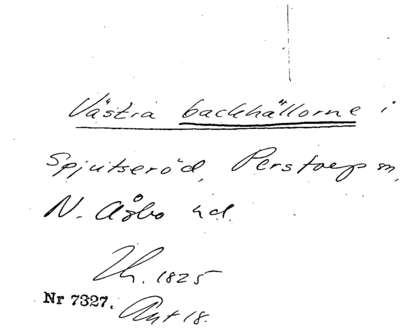 Västra backhällorne i
Spjutseröd, Perstorp sn,
N. Åsbo hd.
Lh. 1825
Nr 7327. Akt 18.